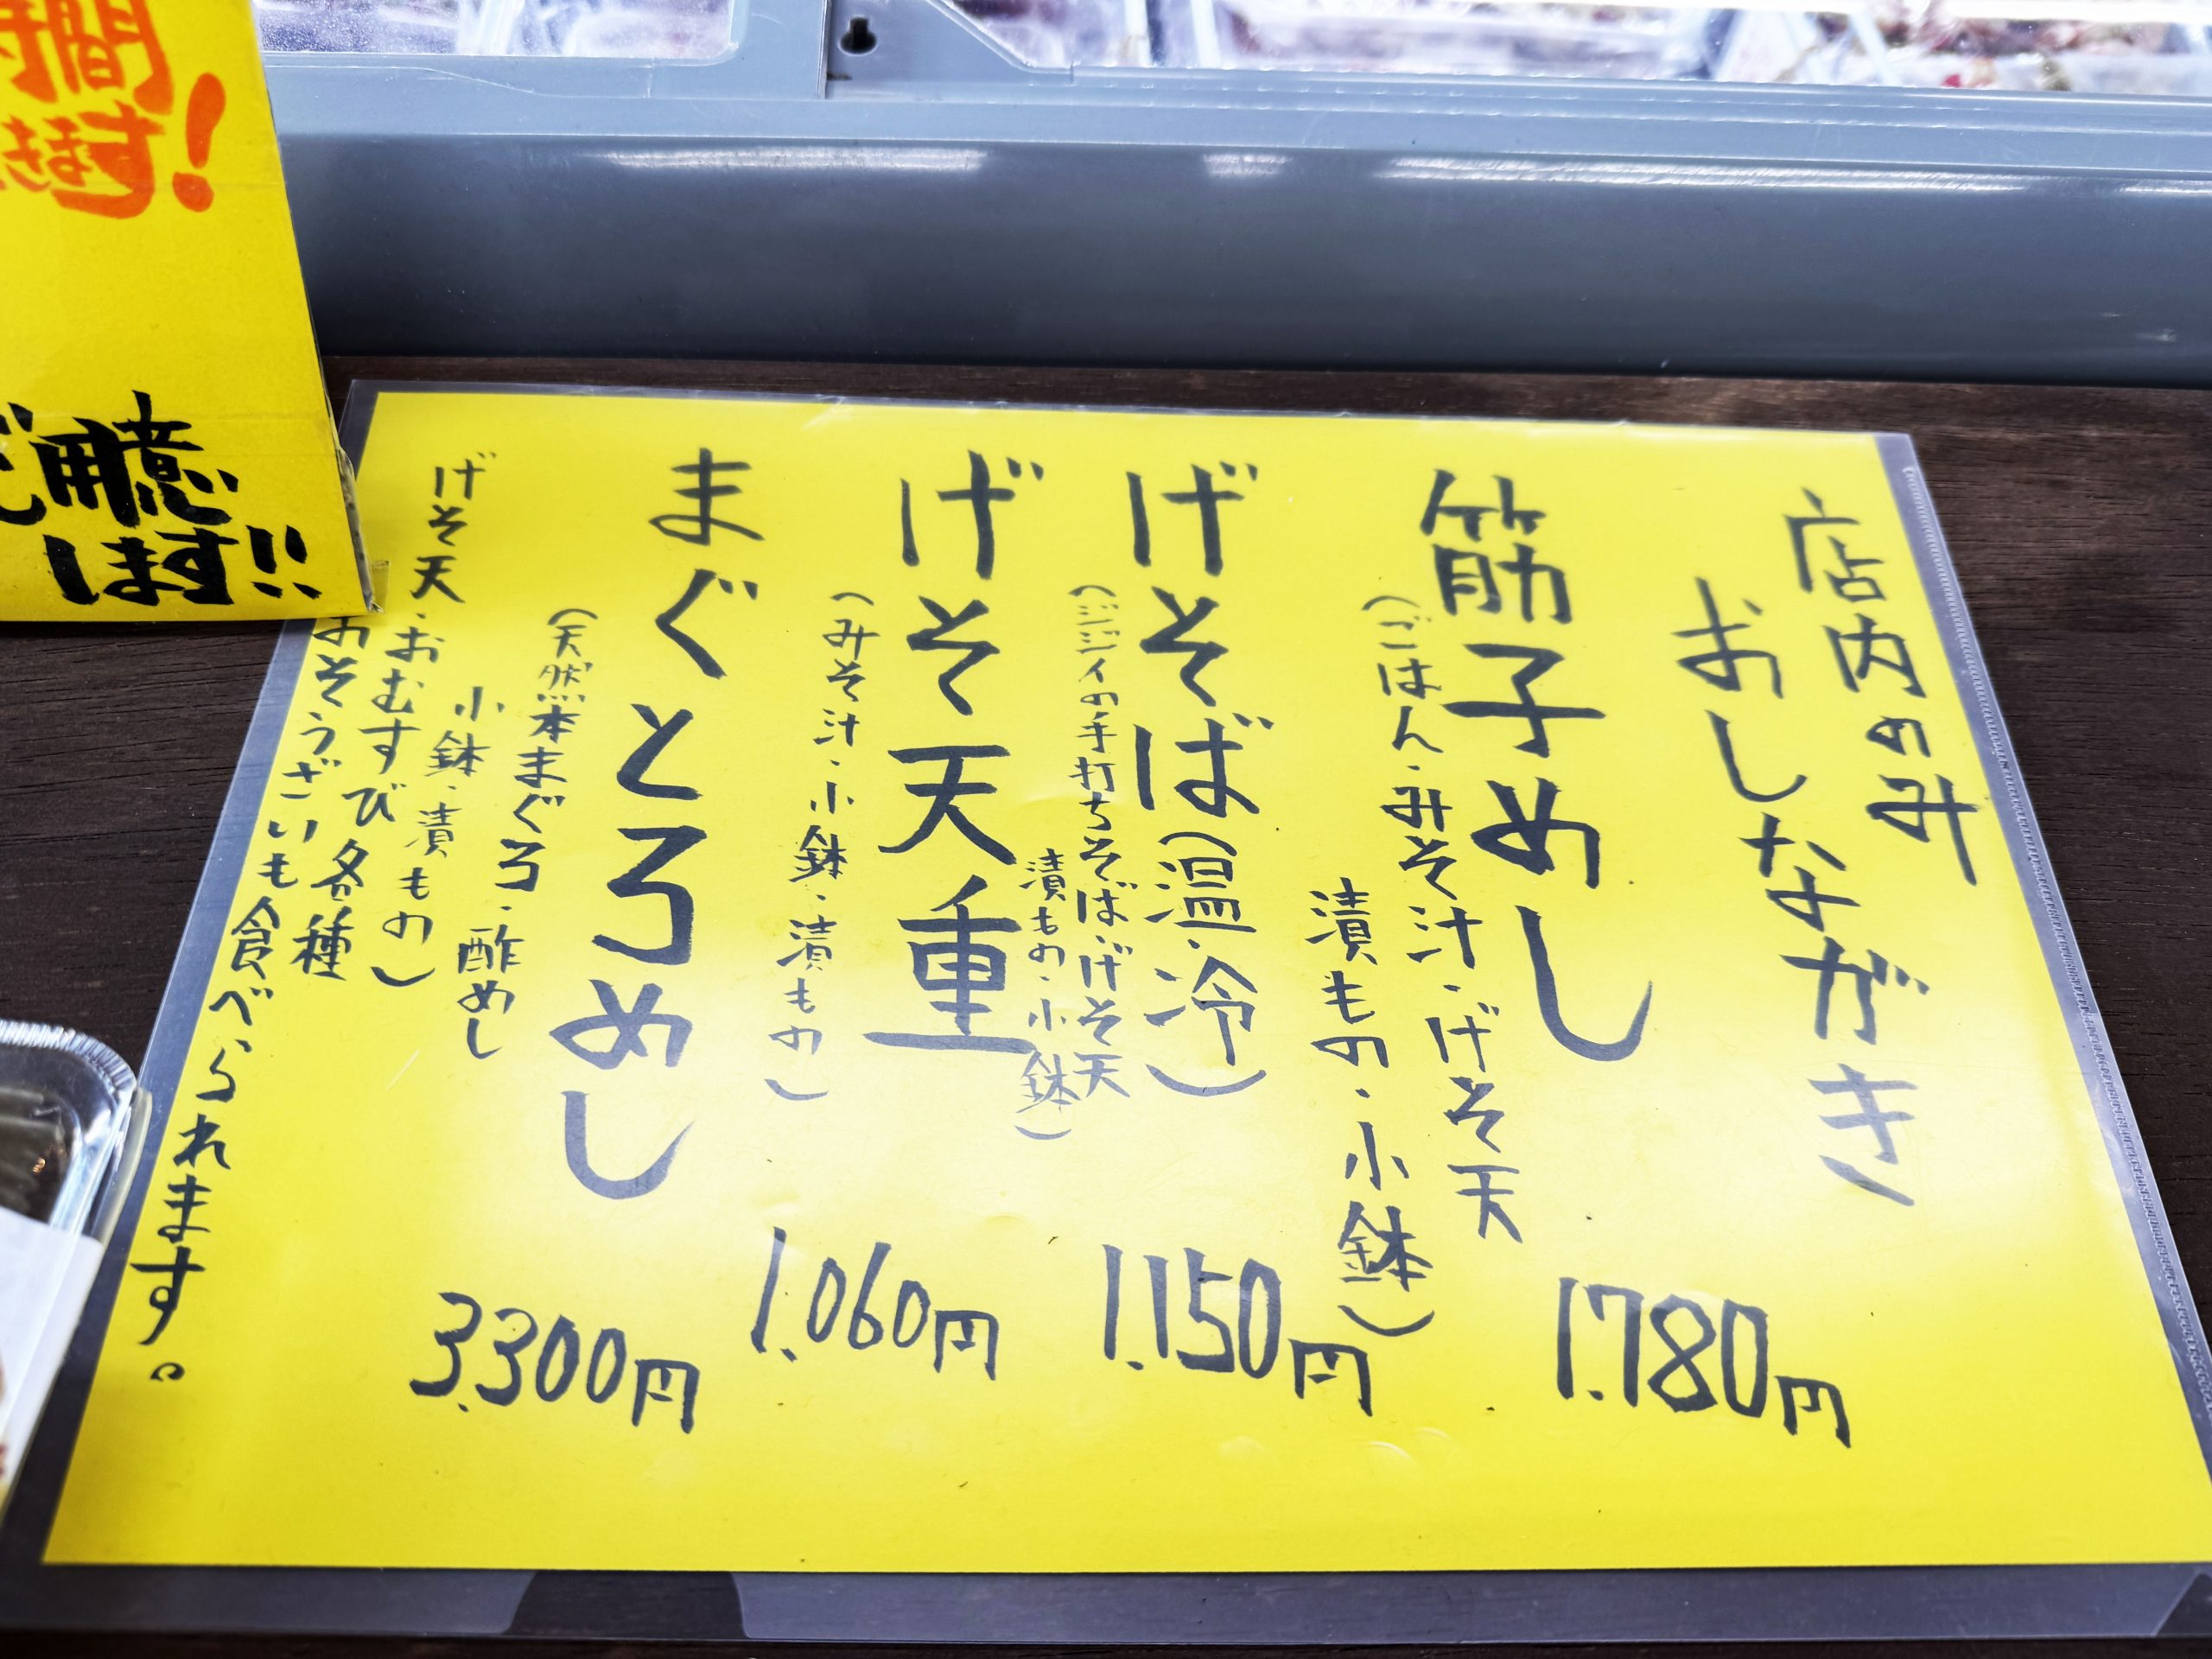 店内のみ
おしながき
筋子めし 1.780円
(ごはん・みそ汁・げそ天
漬もの・小鉢)
げそば(温・冷) 1.150円
(ジジイの手打ちそば・げそ天
漬もの・小鉢)
げそ天重 1.060円
(みそ汁・小鉢・漬もの)
まぐとろめし 3.300円
(天然本まぐろ・酢めし
小鉢・漬もの)
げそ天・おむすび各種
おそうざいも食べられます。
時間
きます!
ご用意
します!!